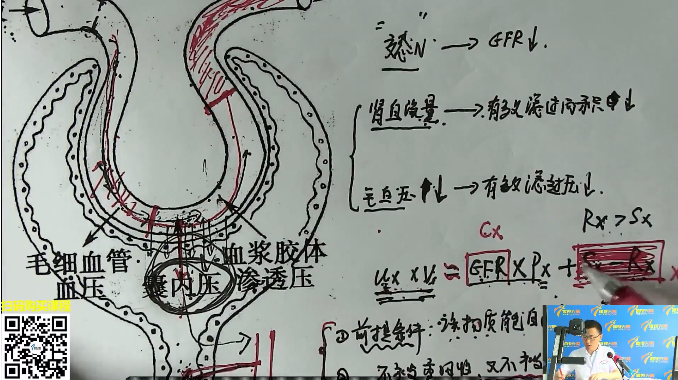 "交感N" → GFR↓.
肾血流量 → 有效滤过面积↓
毛血压↓ → 有效滤过压↓.
Rx > Sx
Cx
毛细血管
血压
囊内压
血浆胶体
渗透压
Ux × V = GFR × Px + Sx - Rx
① 前提条件: 该物质能自
② 不被重吸收, 又不被